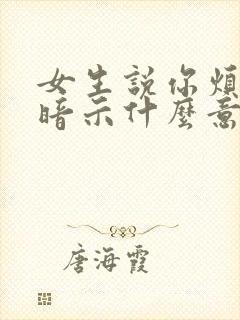 女生説你煩
暗示什麽意
唐海霞